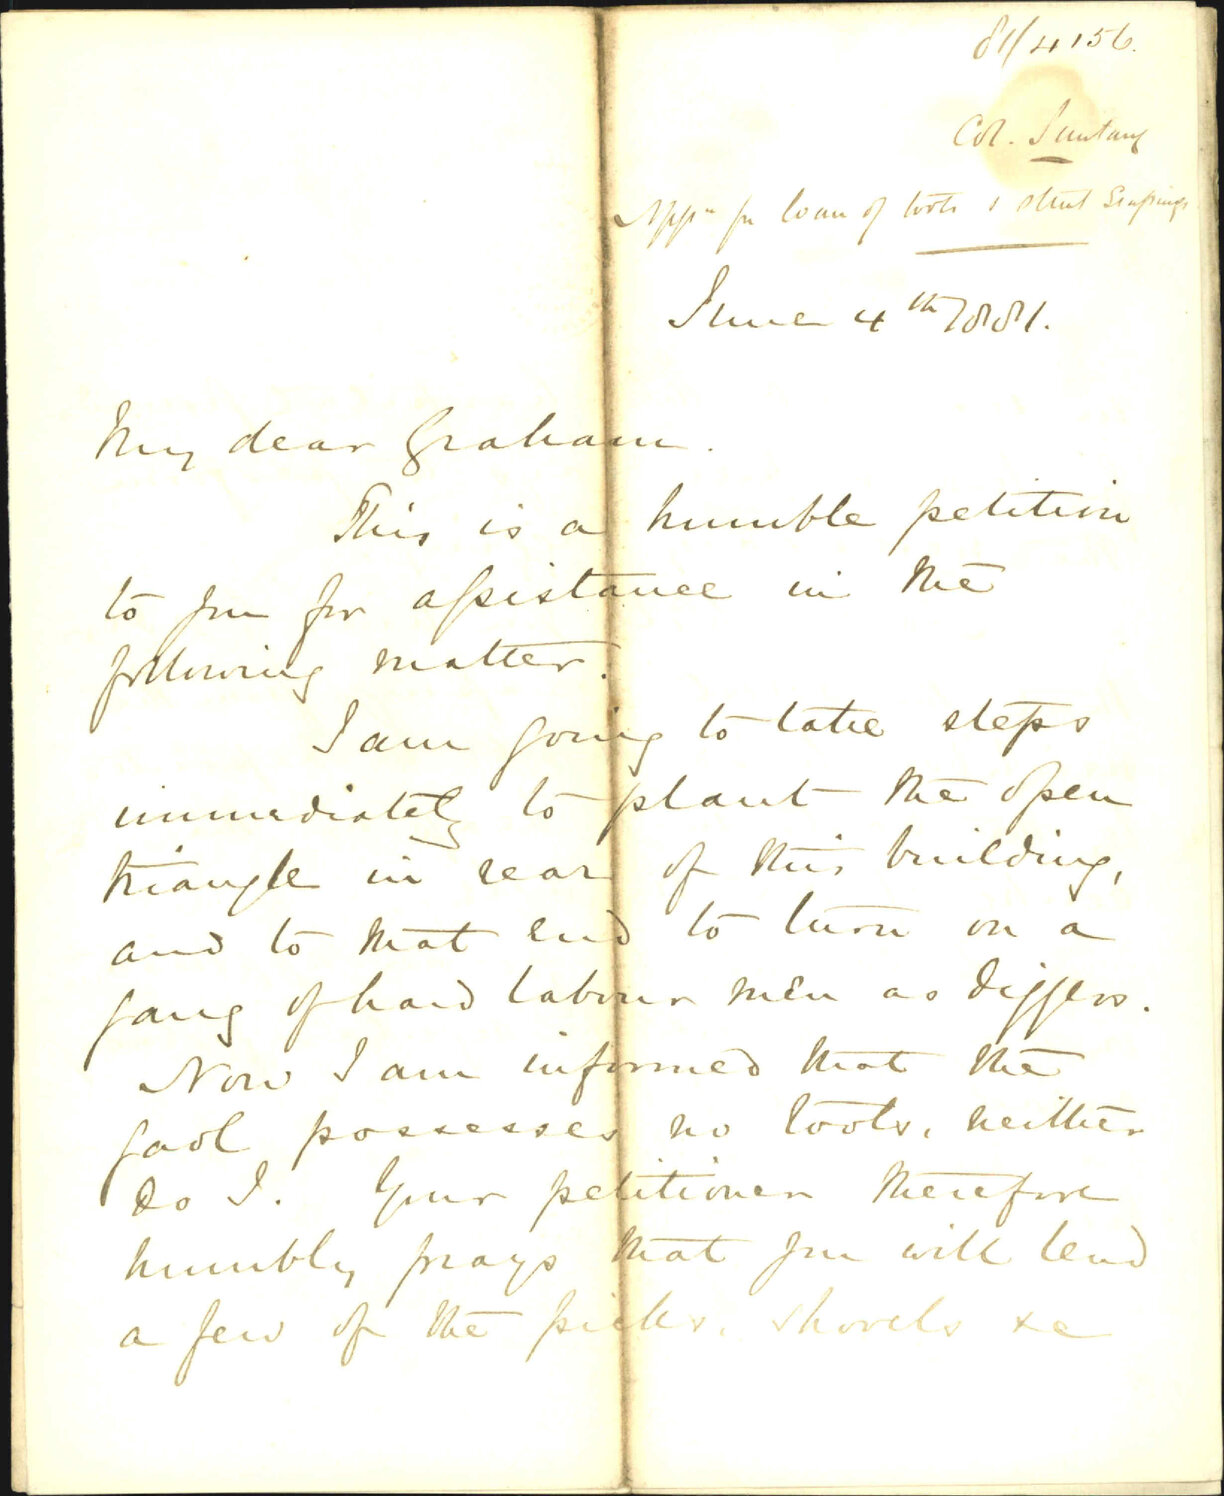 81/4156.
Col. Secretary
Appn for loan of tools & street scrapings
June 4th 1881.
My dear Graham.
This is a humble petition
to you for assistance in the
following matter.
I am going to take steps
immediately to plant the open
triangle in rear of this building,
and to that end to turn on a
gang of hard labour men as diggers.
Now I am informed that the
gaol possesses no tools, neither
do I. Your petitioner therefore
humbly prays that you will lend
a few of the picks, shovels &c